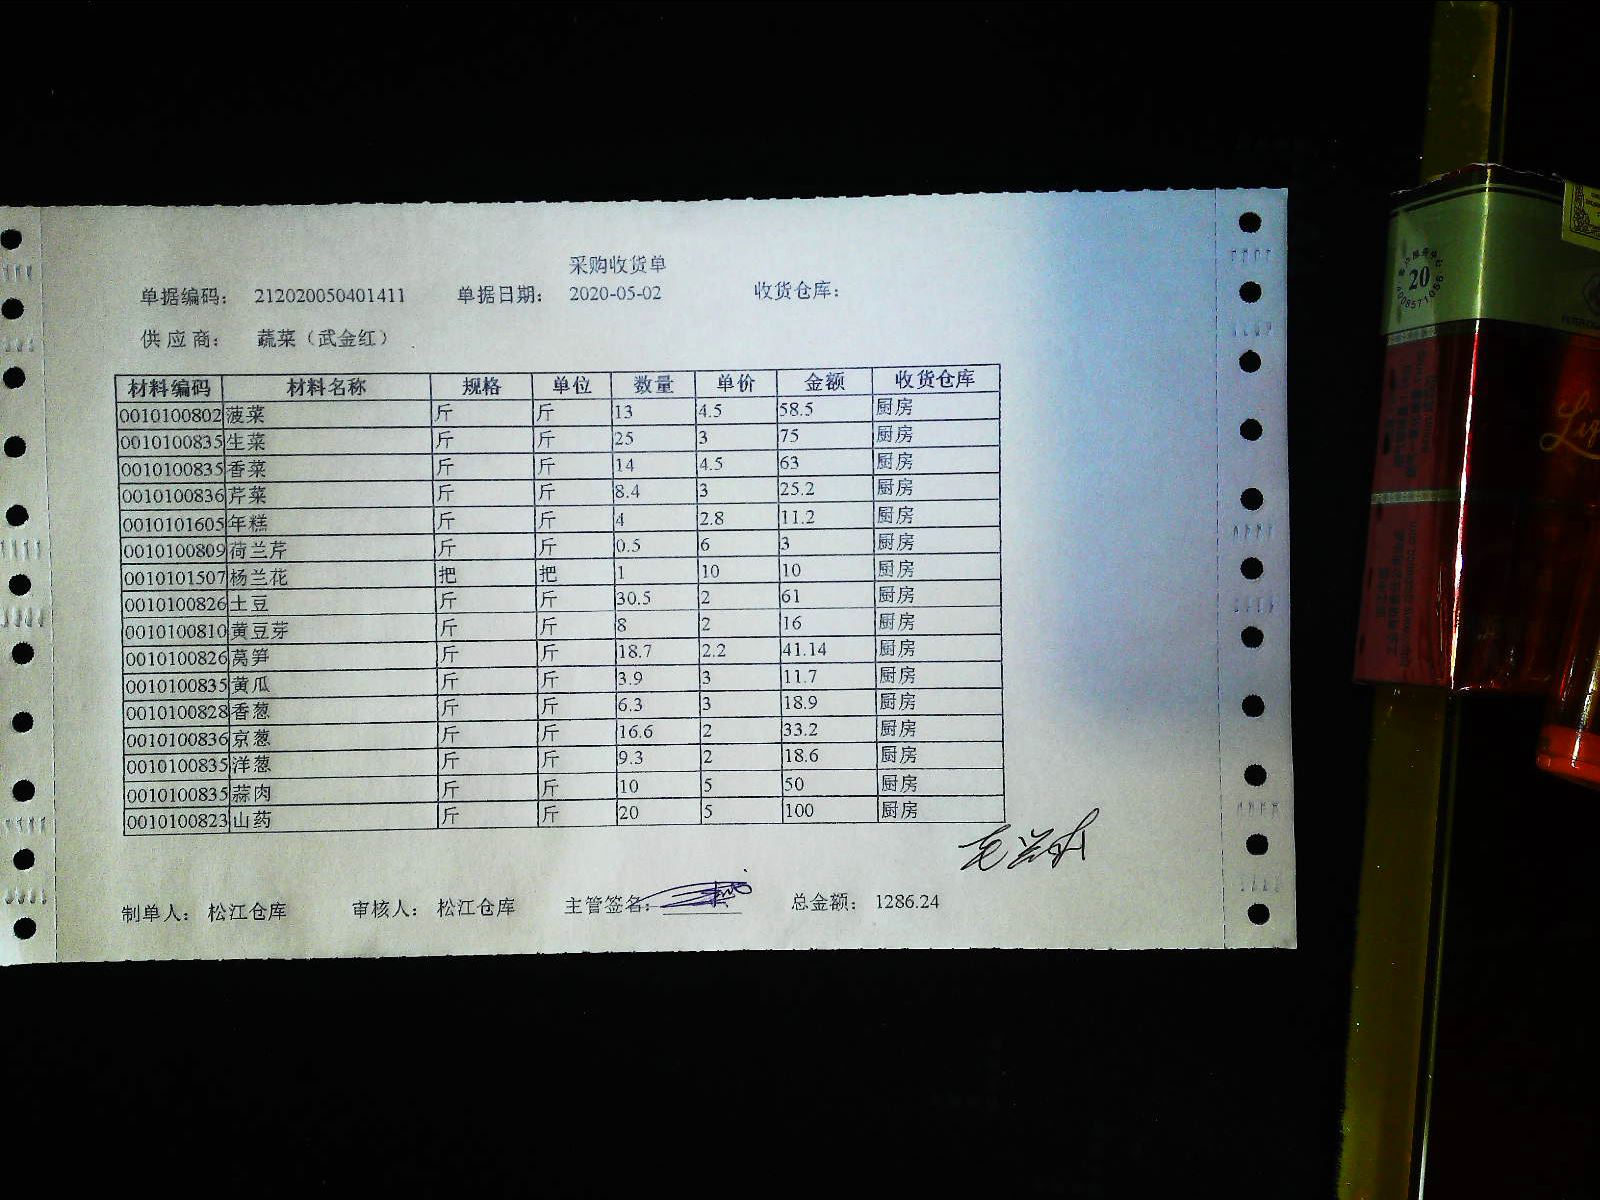 采购收货单
单据编码： 212020050401411 单据日期： 2020-05-02 收货仓库：
供应商： 蔬菜（武金红）
材料编码 材料名称 规格 单位 数量 单价 金额 收货仓库
0010100802 菠菜 斤 斤 13 4.5 58.5 厨房
0010100835 生菜 斤 斤 25 3 75 厨房
0010100835 香菜 斤 斤 14 4.5 63 厨房
0010100836 芹菜 斤 斤 8.4 3 25.2 厨房
0010101605 年糕 斤 斤 4 2.8 11.2 厨房
0010100809 荷兰芹 斤 斤 0.5 6 3 厨房
0010101507 杨兰花 把 把 1 10 10 厨房
0010100826 土豆 斤 斤 30.5 2 61 厨房
0010100810 黄豆芽 斤 斤 8 2 16 厨房
0010100826 莴笋 斤 斤 18.7 2.2 41.14 厨房
0010100835 黄瓜 斤 斤 3.9 3 11.7 厨房
0010100828 香葱 斤 斤 6.3 3 18.9 厨房
0010100836 京葱 斤 斤 16.6 2 33.2 厨房
0010100835 洋葱 斤 斤 9.3 2 18.6 厨房
0010100835 蒜肉 斤 斤 10 5 50 厨房
0010100823 山药 斤 斤 20 5 100 厨房
制单人： 松江仓库 审核人： 松江仓库 主管签名： 总金额： 1286.24
20
4008571056